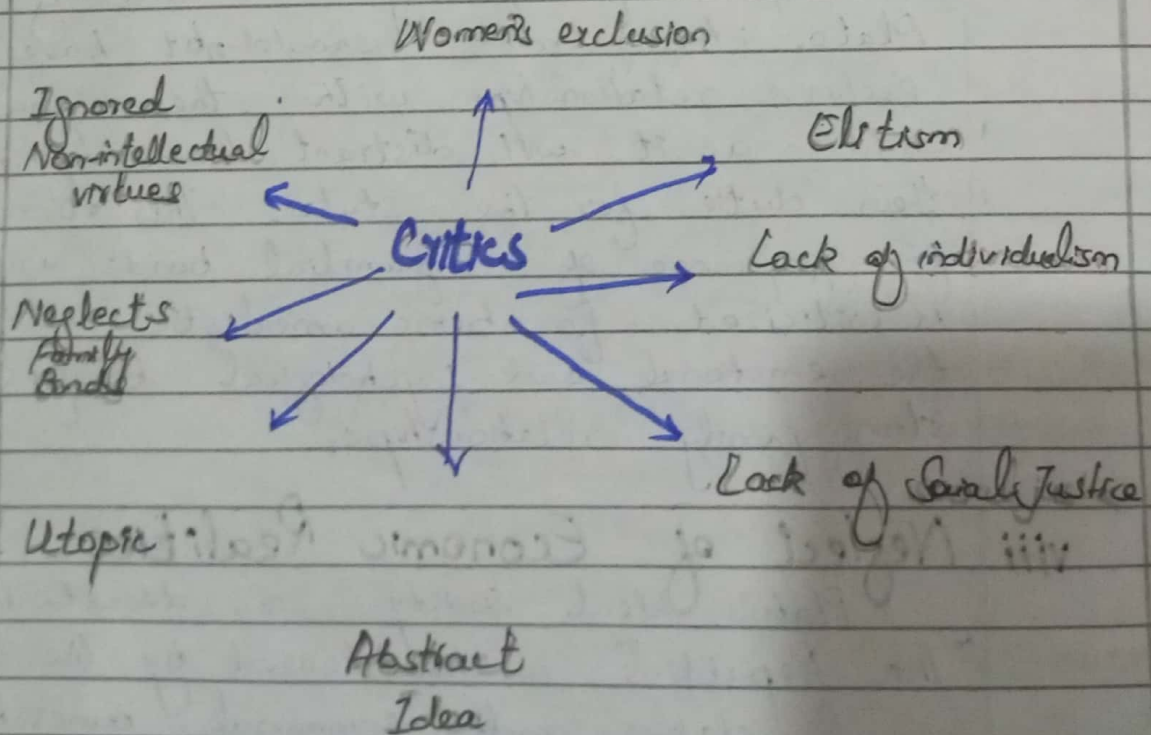 Women's exclusion
Ignored
Non-intellectual
virtues
Elitism
Critics
Lack of individualism
Neglects
Family
Bonds
Lack of Social Justice
Utopic
viii Neglect of Economic Realit
Abstract
Idea